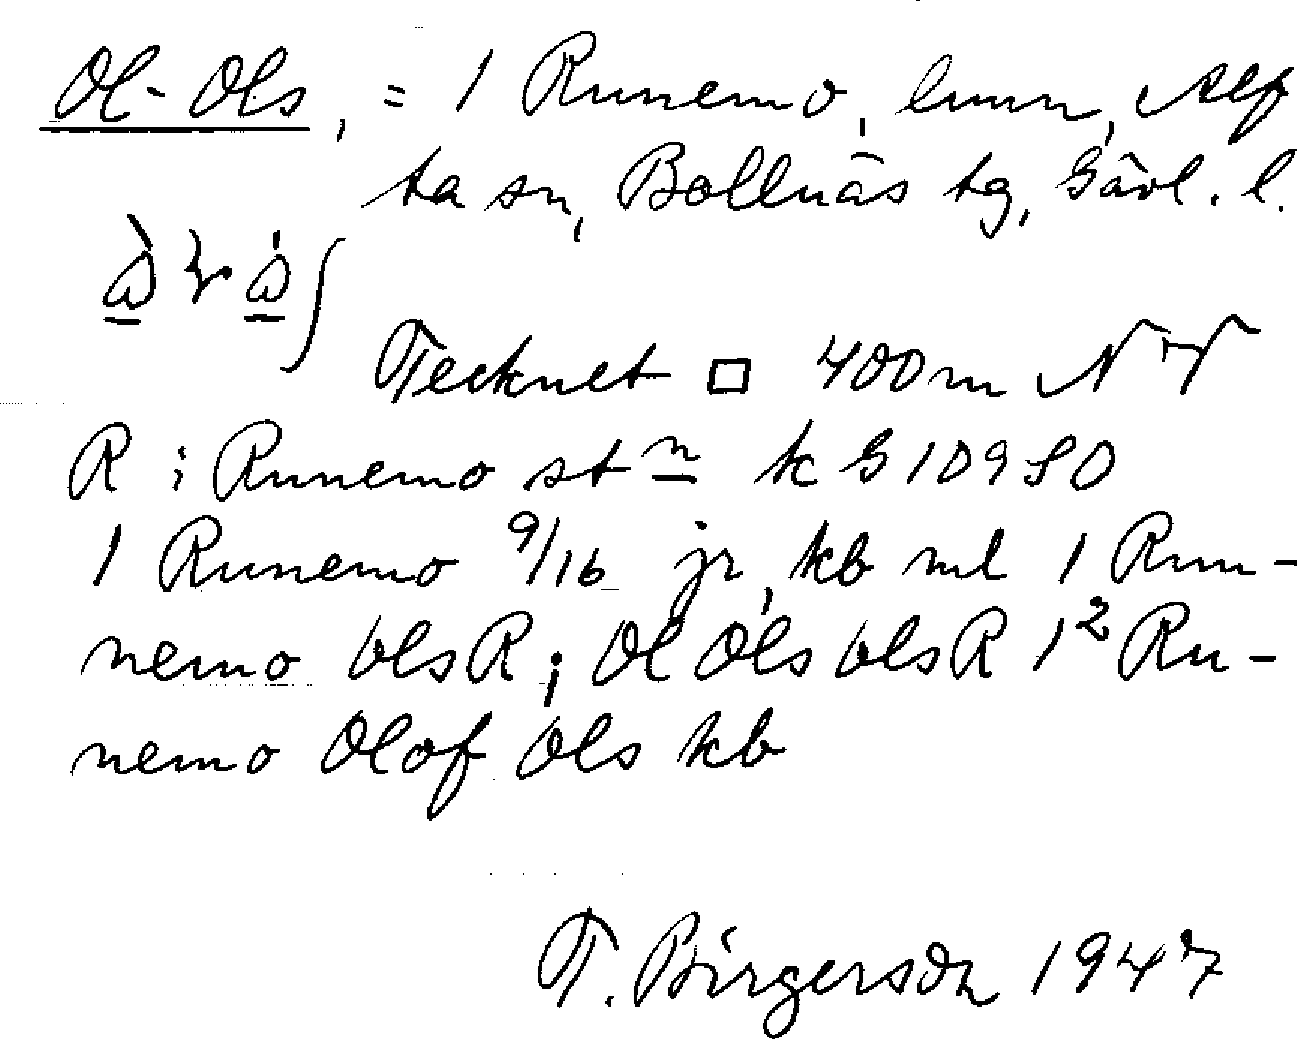 Ol-Ols, = 1 Runemo, hmn, Alf
ta sn, Bollnäs tg, Gävl. l.
Tecknet □ 400 m NV
R i Runemo stn k G 10980
1 Runemo 9/16 jr, kb ml 1 Run-
nemo olsR; Ol Ols olsR 1² Ru-
nemo Olof Ols kb
T. Birgerson 1947